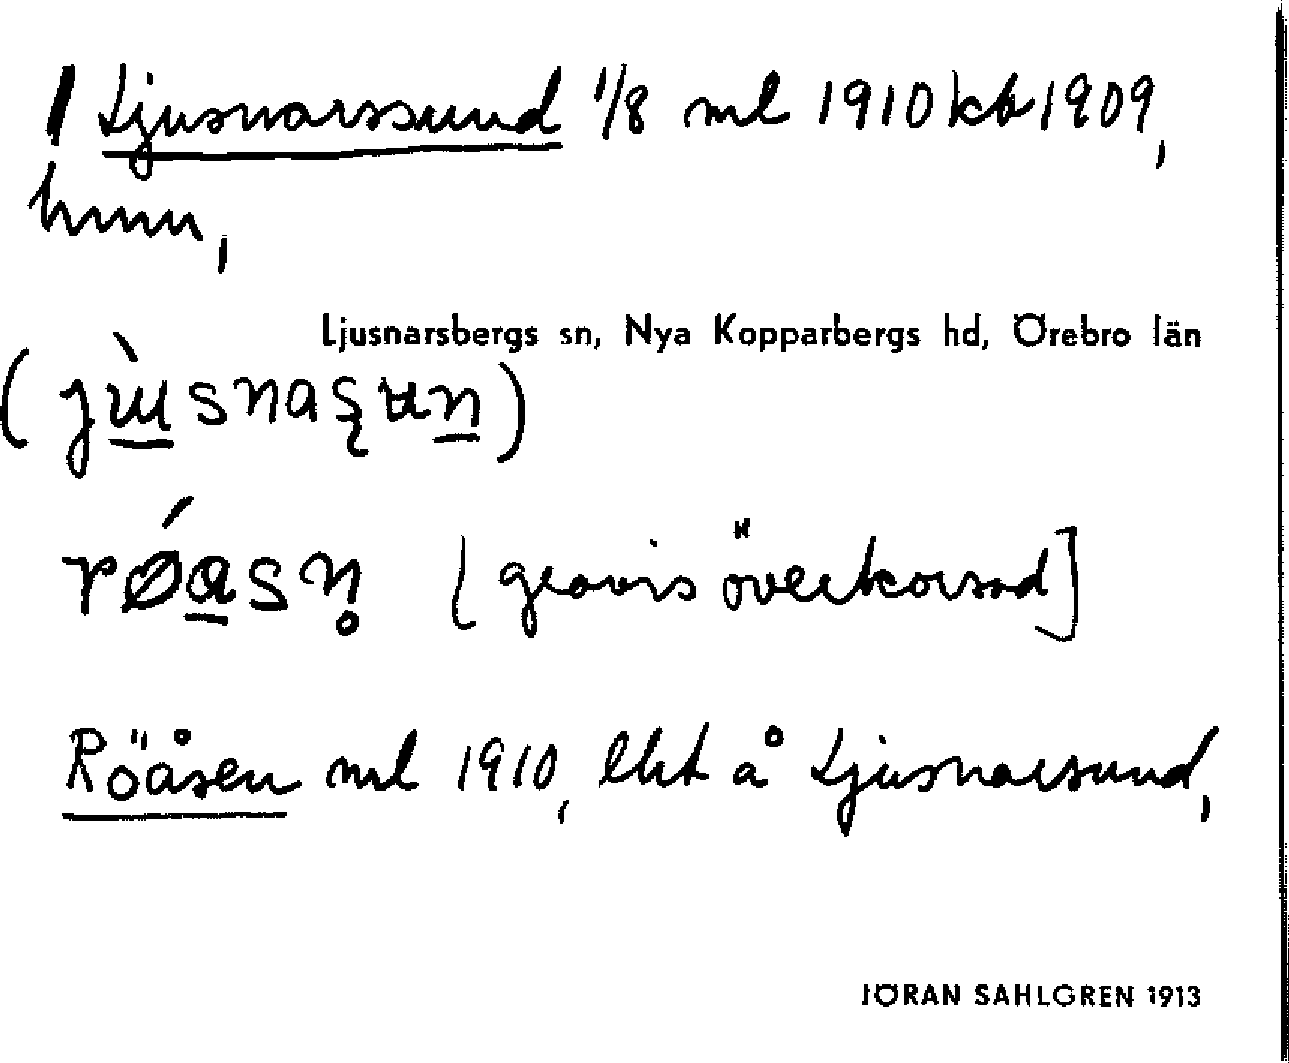 Ljusnarssund 1/8 ml 1910 kb 1909,
hmn,
Ljusnarsbergs sn, Nya Kopparbergs hd, Örebro län
röasn̥ [gravis överkorsad]
Röåsen ml 1910, lht å Ljusnarsund,
JÖRAN SAHLGREN 1913